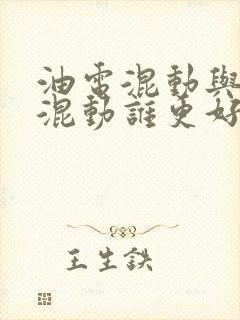 油電混動與
混動誰更好
王生鉄